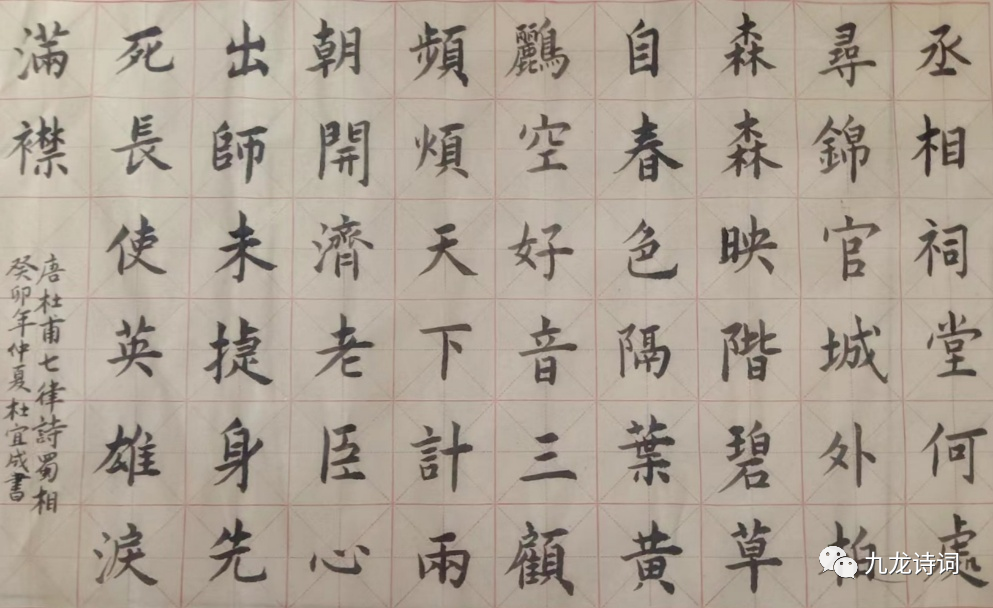 丞相祠堂何處
尋錦官城外柏
森森映階碧草
自春色隔葉黄
鸝空好音三顧
頻煩天下計兩
朝開濟老臣心
出師未捷身先
死長使英雄淚
滿襟
唐杜甫七律詩蜀相
癸卯年仲夏杜宜成書
九龙诗词